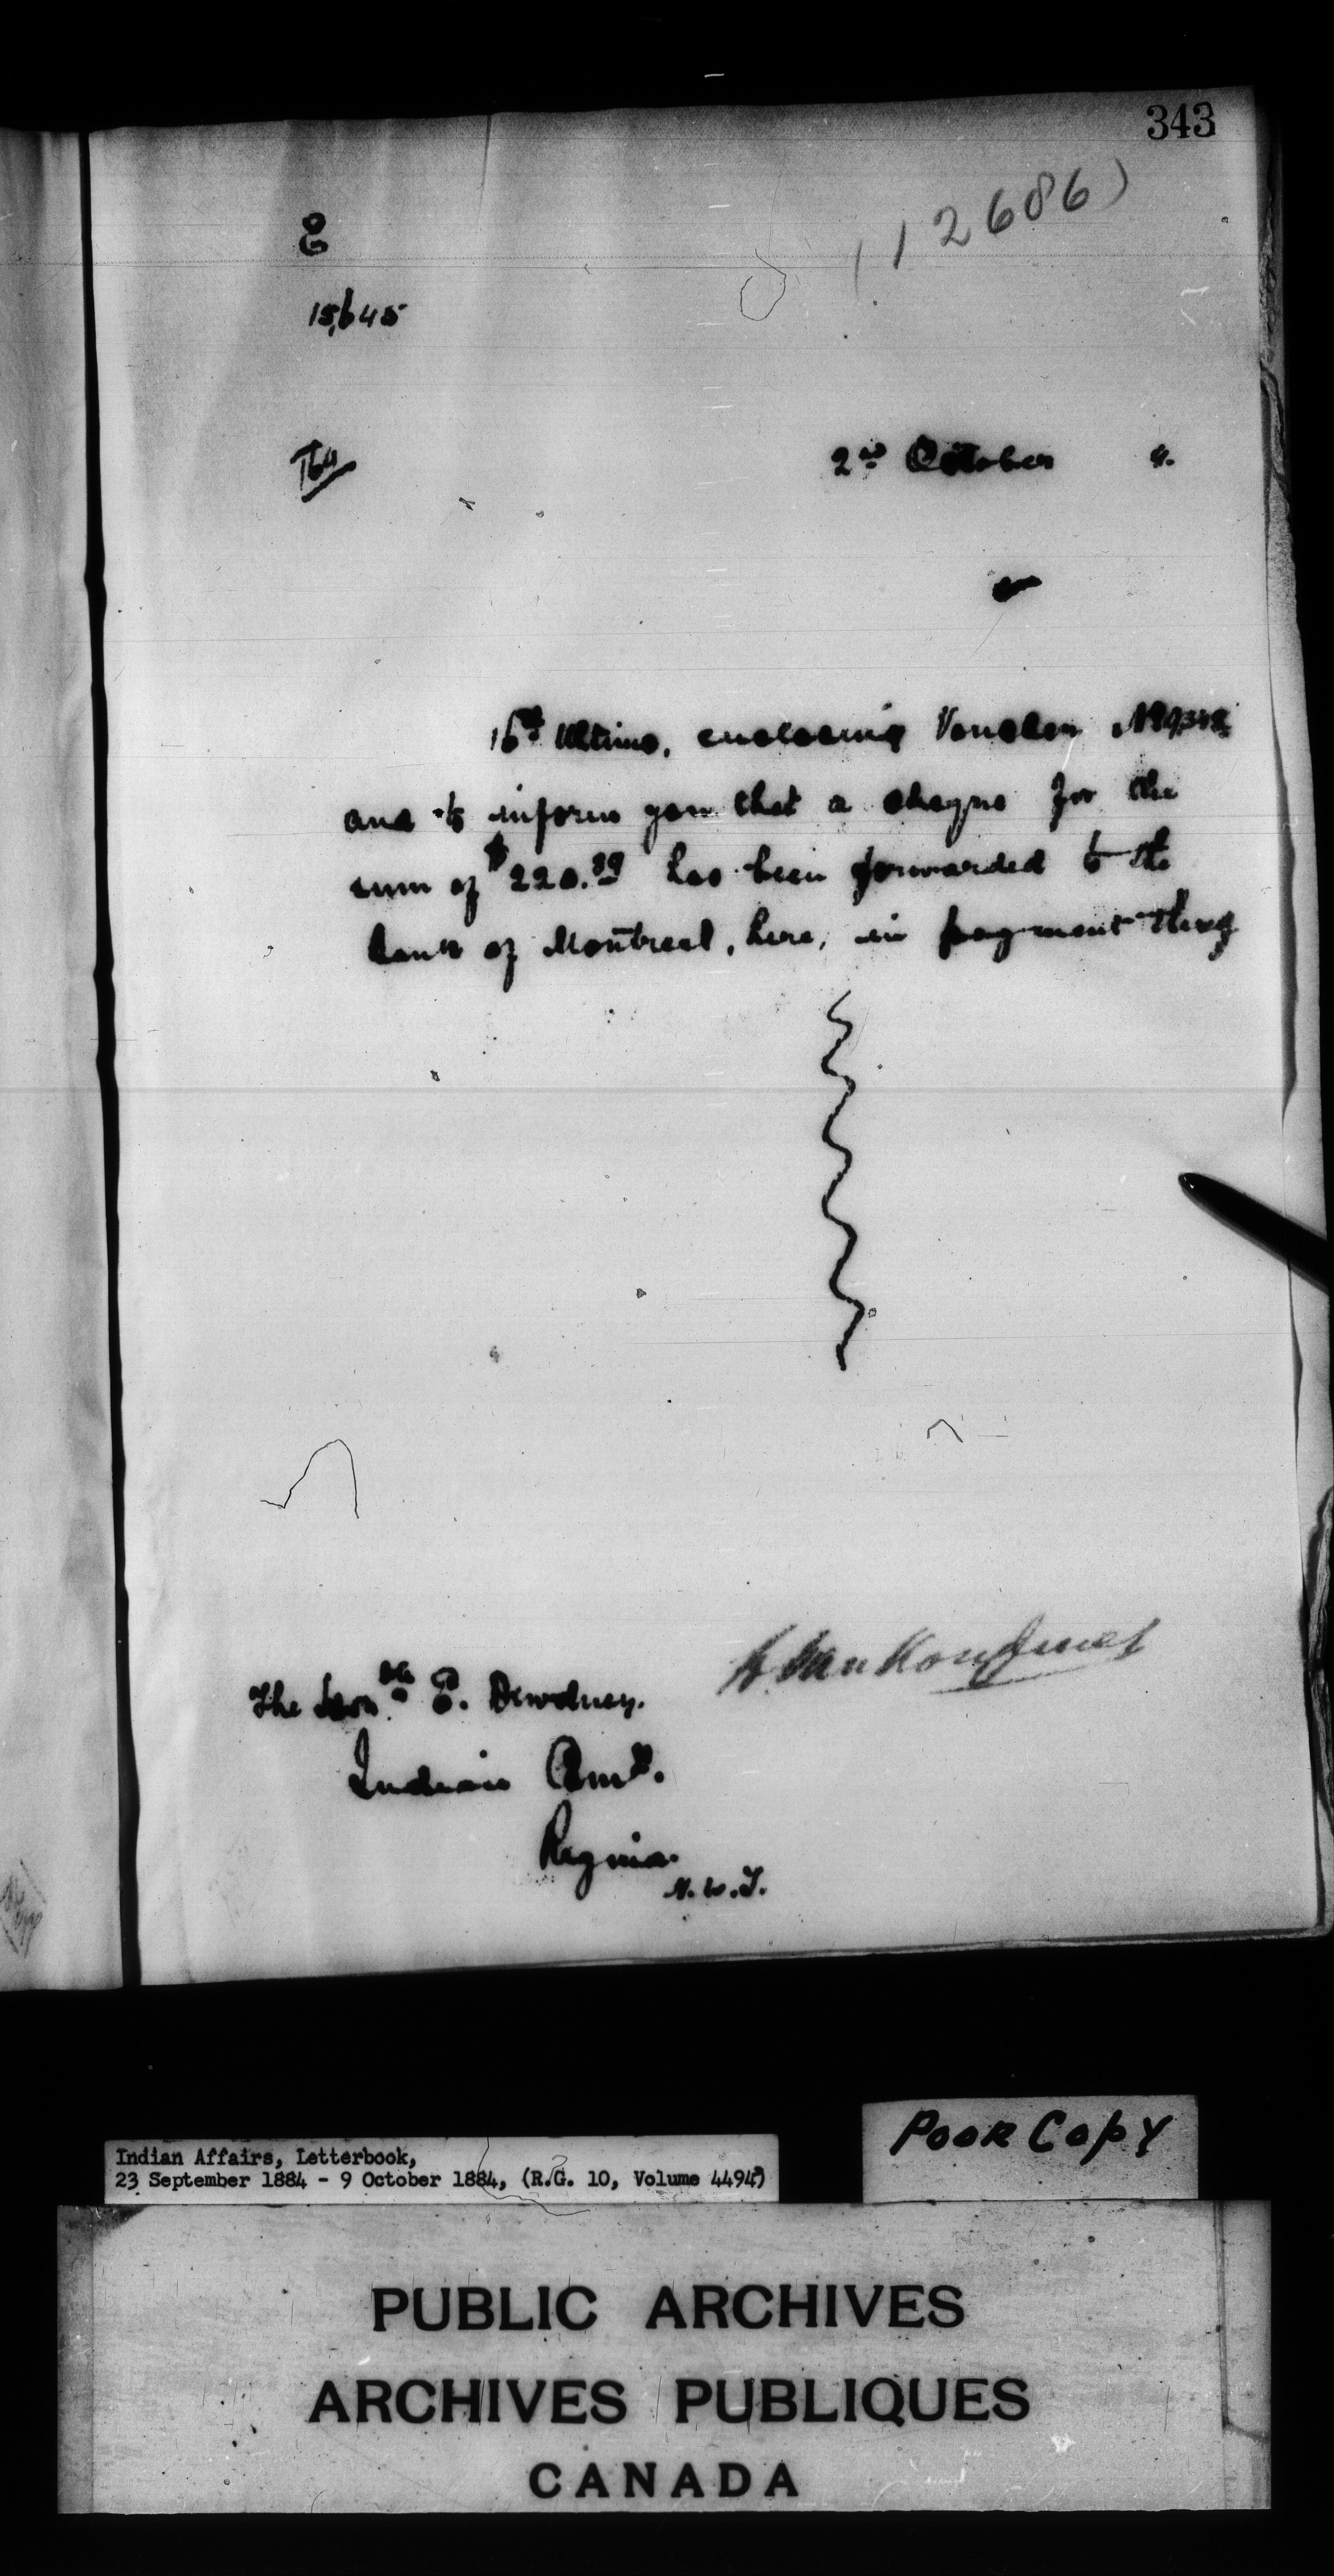 343
(12686)
E
15,645
2nd October 4.
16th Ultimo, enclosing Voucher
and to inform you that a cheque for the
sum of $220.39 has been forwarded to the
bank of Montreal, here, in payment there
L. VanKoughnet
The Honble E. Dewdney.
Indian Comr.
Regina.
N.W.T.
Poor Copy
Indian Affairs, Letterbook,
23 September 1884 - 9 October 1884, (R.G. 10, Volume 4494)
PUBLIC ARCHIVES
ARCHIVES PUBLIQUES
CANADA